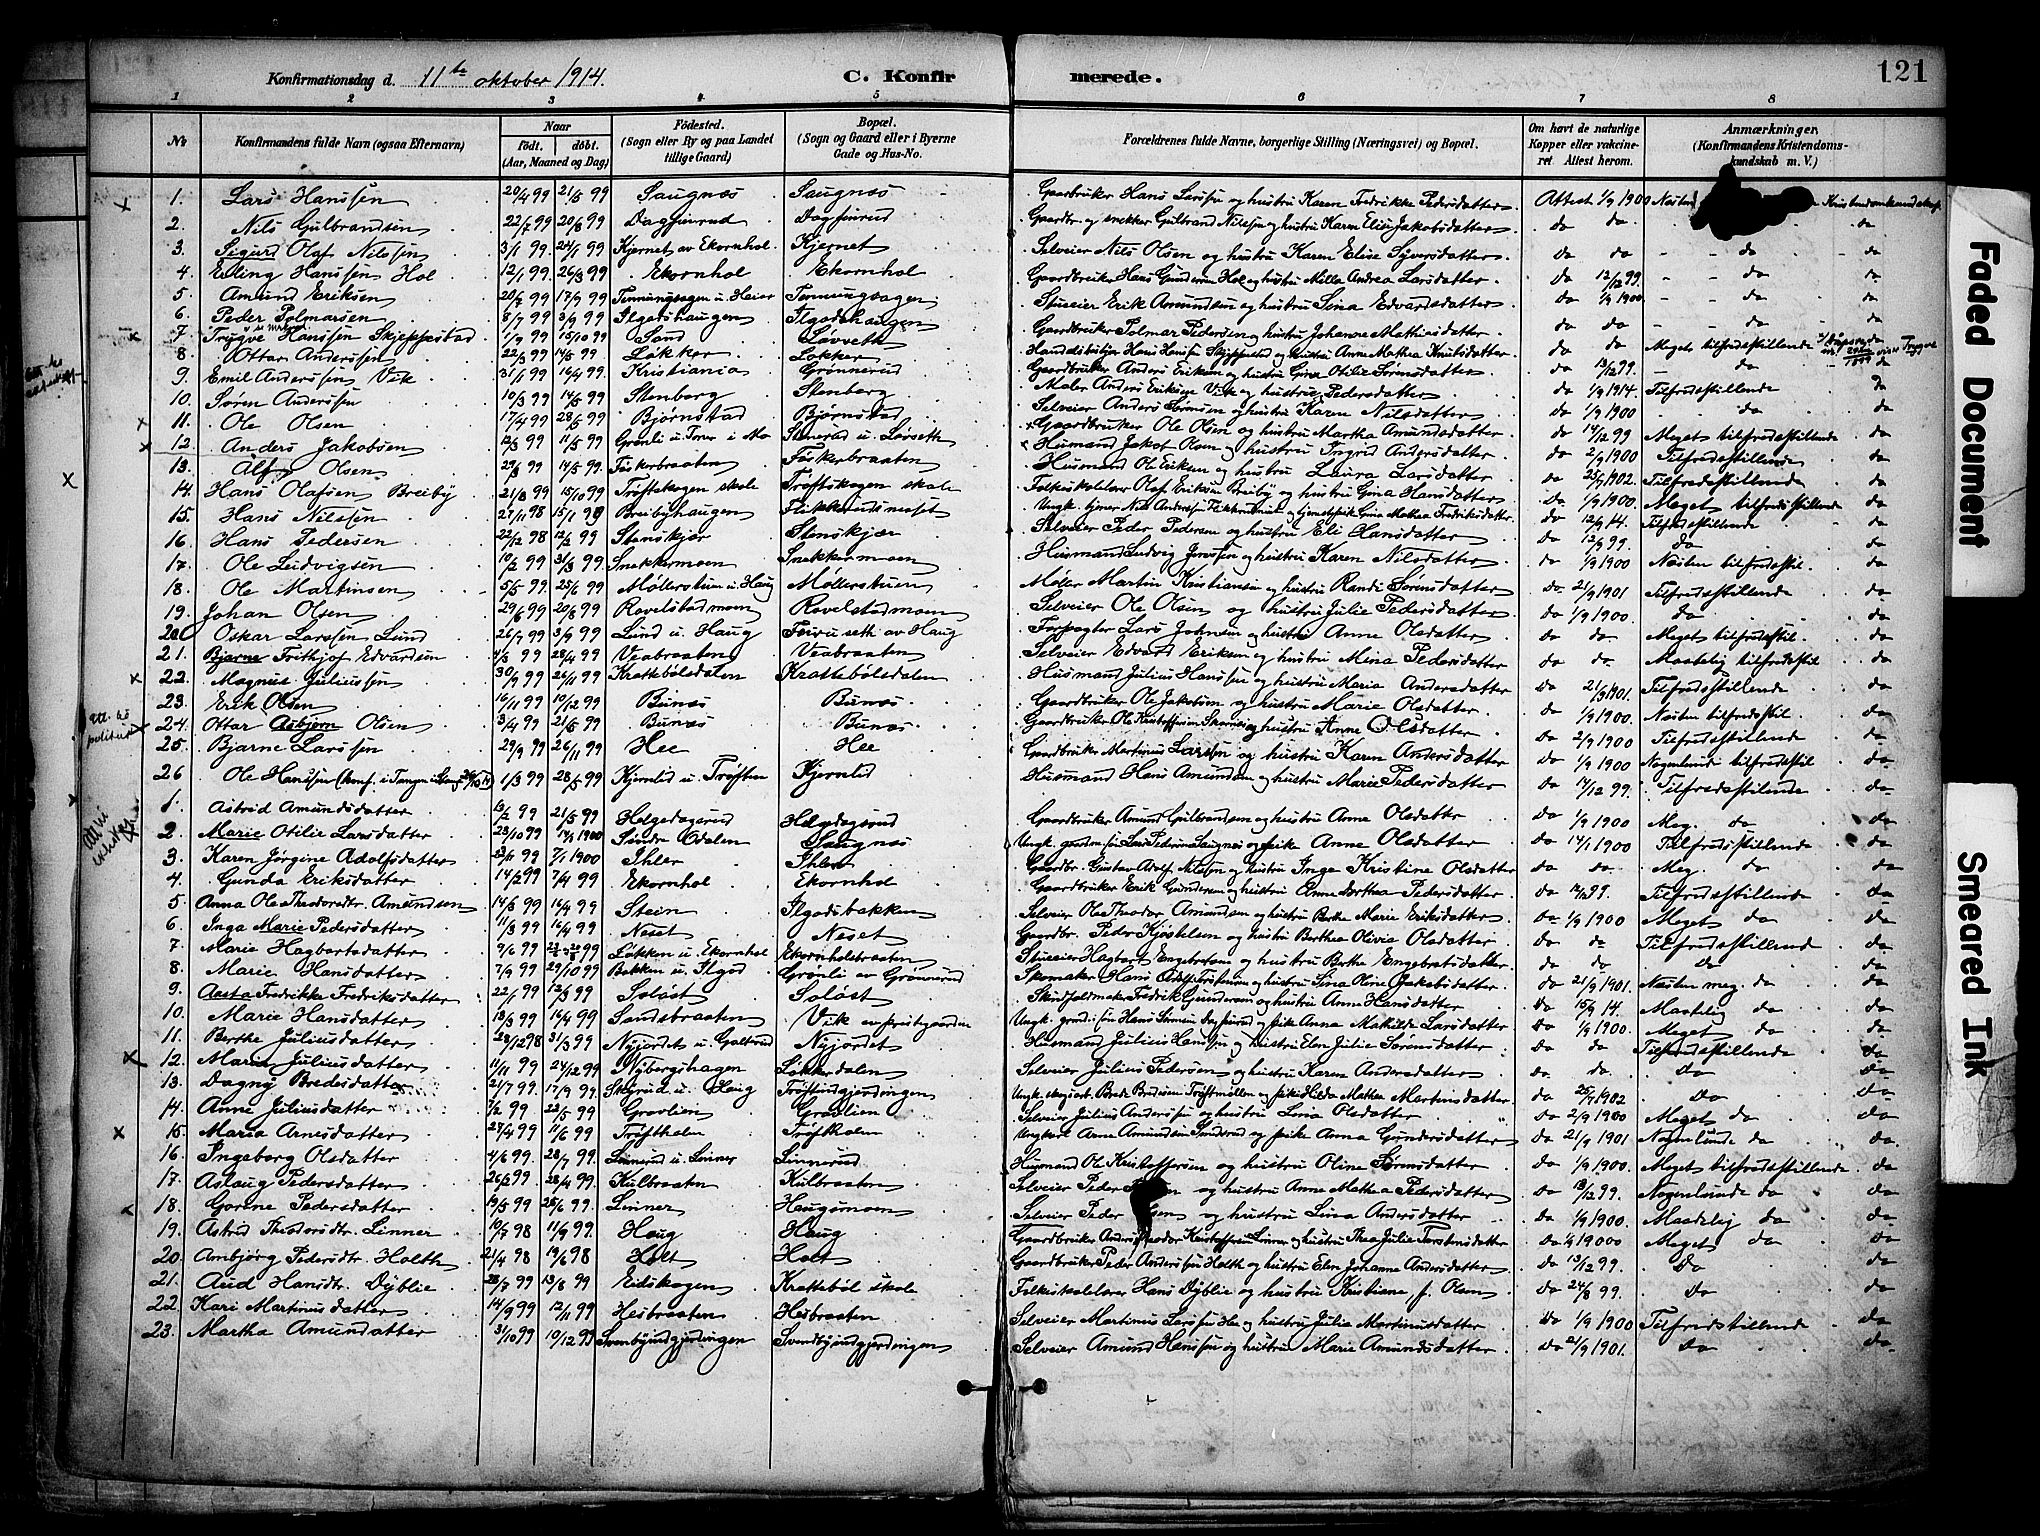 Konfirmationsdag d. 11te oktober 1914.
C. Konfirmerede.
121
1 2 3 4 5 6 7 8
No Konfirmandens fulde Navn (ogsaa Efternavn) Naar født. døbt. (Aar, Maaned og Dag) Fødested. (Sogn eller By og paa Landet tillige Gaard) Bopæl. (Sogn og Gaard eller i Byerne Gade og Hus-No. Forældrenes fulde Navne, borgerlige Stilling (Næringsvei) og Bopæl. Om havt de naturlige Kopper eller vakcineret. Attest herom. Anmærkninger, (Konfirmandens Kristendomskundskab m. V.)
1. Lars Hanssen 20/4 99 21/5 99 Saugnæs Saugnæs Gaardbruker Hans Larssen og hustru Karen Fredrikke Pedersdatter Attest 1/9 1900 Næsten Kristendomskundskap
2. Nils Gulbrandsen 22/7 99 20/8 99 Dagfinrud Dagfinrud Gaardbr. og snekker Gulbrand Nilssen og hustru Karen Elise Jakobsdatter do do do
3. Sigurd Olaf Nilssen 3/1 99. 24/1 99 Kjernet av Ekornhol Kjernet Selveier Nils Olsen og hustru Karen Elise Syversdatter do do do do
4. Erling Hanssen Hol 12/1 99. 26/3 99 Ekornhol Ekornhol Gaardbruker Hans Gundersen Hol og hustru Milla Andrea Larsdatter do 12/12 99. do do
5. Amund Eriksen 20/7 99 17/9 99 Tenningsagen u. Heier Tenningsagen Erik Amundsen og hustru Lina Edvardsdatter do 1/9 1900 do do
6. Peder Polmarsen 8/7 99 3/9 99 Ilgodshaugen Ilgodshaugen Gaardbruker Polmar Pedersen og hustru Johanne Mathisdatter do do do do
7. Trygve Hanssen Skjeppestad 1/9 99 15/10 99 Sand Løvseth Hans Hanssen Skjeppestad og hustru Anne Mathea Knutsdatter do do Meget tilfredsstillende
8. Ottar Anderssen 22/3 99 14/5 99. Løkker Løkker Gaardbruker Anders Eriksen og hustru Gina Otilie Sørensdatter do 13/12 99. do do
9. Emil Anderssen Vik 31/1 99 16/4 99 Kristiania Grønnerud Maler Anders Eriksen Vik og hustru Pedersdatter do 1/9 1914 Tilfredsstillende do
10. Søren Anderssen 10/3 99 14/5 99 Stenberg Stenberg Selveier Anders Sørensen og hustru Karen Nilsdatter do 1/9 1900 do do
11. Ole Olsen 17/4 99 28/5 99 Bjørnstad Bjørnstad Gaardbruker Ole Olsen og hustru Martha Amundsdatter do 14/12 99 Meget tilfredsstillende do
12. Anders Jakobsen 12/3 99 11/5 99 Grønli u. Stenerud u. Løvseth Husmand Jakob Olsen og hustru Ingrid Andersdatter do 2/9 1900 Tilfredsstillende do
13. Alf Olsen 29/3 99 14/5 99. Fiskerbraaten Fiskerbraaten Husmand Ole Eriksen og hustru Laura Larsdatter do 25/9 1902. Tilfredsstillende do
14. Hans Olafsen Breiby 21/8 99 15/10 99 Trøftskogen skole Trøftskogen skole Folkeskolelærer Olaf Eriksen Breiby og hustru Gina Hansdatter do 1/9 1900. Meget tilfredsstillende do
15. Hans Nilssen 27/11 98 15/1 99 Breibyhaugen Flikkerudsmoset Ungk. tjener Nils Anderssen og tjenestepike Gine Mathea Fredriksdatter do 12/9 14. Tilfredsstillende do
16. Hans Pedersen 22/12 98 12/2 99 Stenskjær Stenskjær Selveier Peder Pedersen og hustru Eli Hansdatter do 12/9 99. do do
17. Ole Ludvigsen 10/2 99 31/3 99. Snekkermoen Snekkermoen Husmand Ludvig Jenssen og hustru Karen Nilsdatter do 1/9 1900 Næsten tilfredsstil. do
18. Ole Martinsen 5/5 99. 25/6 99 Møllerstuen u. Haug Møllerstuen Møller Martin Kristiansen og hustru Randi Sørensdatter do 21/9 1901 Tilfredsstillende do
19. Johan Olsen 29/6 99 20/8 99 Ravelstadmoen Ravelstadmoen Selveier Ole Olsen og hustru Julie Pedersdatter do 1/9 1900. do do
20. Oskar Larssen Lund 26/7 99 3/9 99 Lund u. Haug av Haug Forpagter Lars Johnsen og hustru Anne Olsdatter do do Meget tilfredsstil. do
21. Bjarne Frithjof Edvardsen 4/3 99 28/4 99 Veabraaten Veabraaten Selveier Edvard Eriksen og hustru Mina Pedersdatter do do Maadelig tilfredsstil do
22. Magnus Juliussen 30/9 99 26/11 99 Krattebølsdalen Krattebølsdalen Husmand Julius Hanssen og hustru Maria Andersdatter do 21/9 1901. Tilfredsstillende do
23. Erik Olsen 16/11 99 10/12 99 Bunæs Bunæs Gaardbruker Ole Jakobsen og hustru Marie Olsdatter do 1/9 1900. Næsten tilfredsstil. do
24. Ottar Asbjørn Olsen 3/4 99 21/5 99 Bunæs Bunæs Gaardbruker Ole Kristoffersen og hustru Anne Olsdatter do 2/9 1900 Tilfredsstillende do
25. Bjarne Larssen 29/9 99 26/11 99 Hee Hee Gaardbruker Martinius Larssen og hustru Karen Andersdatter do 1/9 1900 Nogenlunde tilfredsstil do
26 Ole Hanssen 1/3 99 28/5 99 Kjernlid u. Trøften Kjernlid Husmand Hans Amundsen og hustru Marie Pedersdatter do 17/12 99. Tilfredsstillende do
1. Astrid Amundsdatter 13/2 99 21/5 99 Helgedagsrud Helgedagsrud Gaardbruker Amund Gulbrandsen og hustru Anne Olsdatter do 1/9 1900 Meg. do do
2. Marie Otilie Larsdatter 23/10 99 14/1 1900 Søndre Odalen Saugnæs Ungk. Lars Pedersen Saugnæs og pike Anne Olsdatter do 14/1 1900 Tilfredsstillende do
3. Karen Jørgine Adolfsdatter 22/11 99 7/1 1900 Ihler Ihler Gaardbr. Gustav Adolf Nilssen og hustru Inga Kristine Olsdatter do do Meg. do do
4. Gunda Eriksdatter 14/2 99 7/4 99 Ekornhol Ekornhol Gaardbruker Erik Gundersen og hustru Anne Dorthea Pedersdatter do 12/99. Tilfredsstillende do
5 Anna Ole Theodorsdtr. Amundsen 14/3 99 16/4 99 Stein Ilgodsbakken Selveier Ole Theodor Amundsen og hustru Berthe Marie Eriksdatter do 1/9 1900 Meget do do
6. Inga Marie Pedersdatter 11/3 99 16/4 99 Neset Neset Gaardbr. Peder Kjøstelsen og hustru Berthea Olivia Olsdatter do do Tilfredsstillende do
7. Marie Hagbartsdatter 9/6 99 99 Løkken u. Ekornhol Ekornholsbraaten Hagbart Engebretsen og hustru Berthe Engebretsdatter do do do do
8. Marie Hansdatter 7/9 99 29/10 99 Bakken u. Ilgod Grønli av Grønnerud Skomaker Hans og hustru Lina Oline Jakobsdatter do 21/9 1901. Næsten meg. do do
9. Aasta Fredrikke Fredriksdatter 22/1 99 12/3 99 Soløst Soløst Skindfeldmaker Fredrik Gundersen og hustru Anne Hansdatter do 15/9 14. Maadelig do do
10. Marie Hansdatter 13/3 99 16/4 99 Sandsbraaten Vik av prestegaarden Ungk. Hans Sørensen Dagfinrud og pike Anna Mathilde Larsdatter do 1/9 1900. Meget do do
11. Berthe Juliusdatter 28/12 98 31/3 99 Nyjordet u. Galterud Nyjordet Husmand Julius Hanssen og hustru Elen Julie Sørensdatter do do Tilfredsstillende do
12. Maria Juliusdatter 11/11 99 24/12 99 Nybergshagen Løkkerdalen Selveier Julius Pedersen og hustru Karen Andersdatter do. do. do do
13. Dagny Bredesdatter 21/7 99. 17/9 99. u. Haug Trøftlundgjerdingen Ungk. Brede Bredesen Trøftmøllen og pike Hilda Mathea Martinsdatter do 25/9 1902 do do
14. Anne Juliusdatter 7/2 99 22/5 99 Gravlien Gravlien Selveier Julius Anderssen og hustru Lina Olsdatter do 2/9 1900 Meget do do
15. Maria Arnesdatter 27/4 99 11/6 99. Trøftholen Trøftholen Ungkarl Arne Amundsen Sundsrud og pike Anna Gundersdatter do 21/9 1901 Nogenlunde do do.
16. Ingeborg Olsdatter 4/6 99. 28/7 99. Linnerud u. Linner Linnerud Husmand Ole Kristoffersen og hustru Oline Sørensdatter do 1/9 1900. Meget tilfredsstillende do
17. Aslaug Pedersdatter 26/2 99 28/4 99. Kulbraaten Kulbraaten Selveier Peder og hustru Anne Mathea Pedersdatter do 13/12 99. Nogenlunde do do
18. Gorine Pedersdatter 19/5 99 25/6 99. Linner Haugsmoen Selveier Peder Olsen og hustru Lina Andersdatter do 1/9 1900. Maadelig do do
19. Astrid Theodorsdtr. Linner 10/7 98 11/9 99. Haug Haug Gaardbruker Anders Theodor Kristoffersen Linner og hustru Thea Julie Torstensdatter do 1/9 19000 Meget do do
20. Ambjørg Pedersdtr. Holth 21/4 98 19/6 98 Holt Holt Gaardbruker Peder Anderssen Holth og hustru Elen Johanne Andersdatter do 13/12 99. do do
21. Aud Hansdtr. Dyblie 28/7 99 13/8 99 Eidskogen Krattebøl skole Folkeskolelærer Hans Dyblie og hustru Kristiane f. Olsen do 24/8 99. do do
22. Kari Martinusdatter 14/9 99 12/11 99 Hesbraaten Hesbraaten Selveier Martinus Larssen Hee og hustru Julia Martinusdatter do 1/9 1900 Tilfredsstillende do
23. Martha Amundatter 31/10 99 10/12 99 Svenbyindgjerdingen Svendbyindgjerdingen Selveier Amund Hanssen og hustru Marie Amundsdatter do 21/9 1901. do do
Faded Document
Smeared Ink